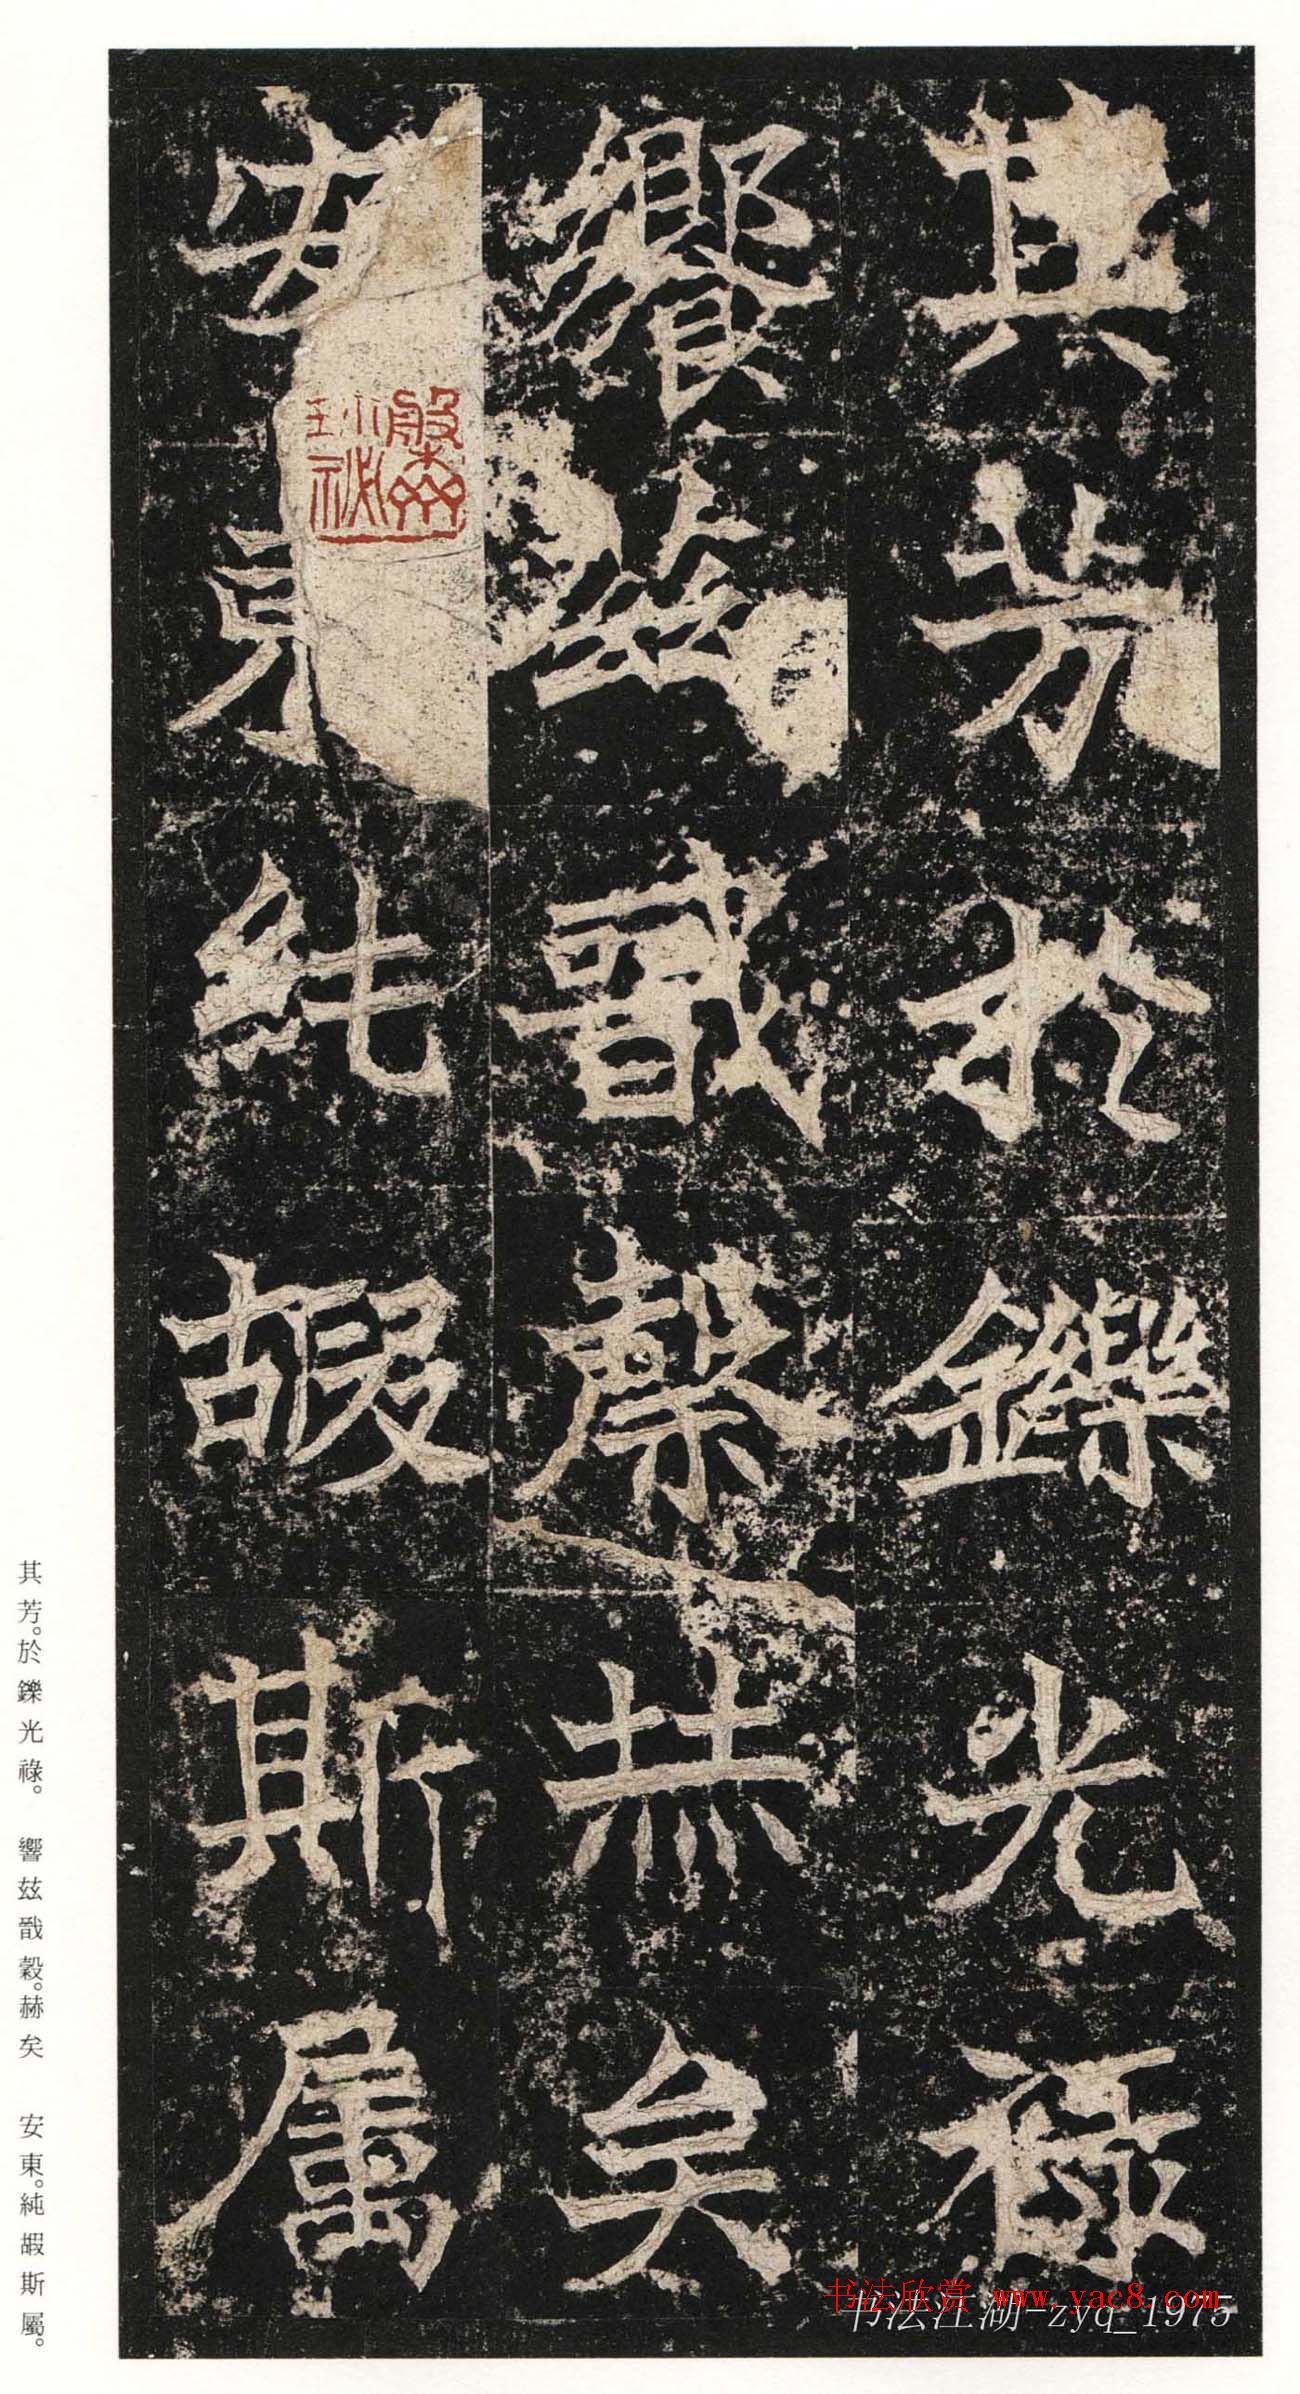 其芳於鑠光祿
饗茲戩穀赫矣
安東純嘏斯屬
其芳。於鑠光祿。 響玆戩穀。赫矣 安東。純嘏斯屬。
书法欣赏 www.yac8.com
书法江湖-zyq_1975